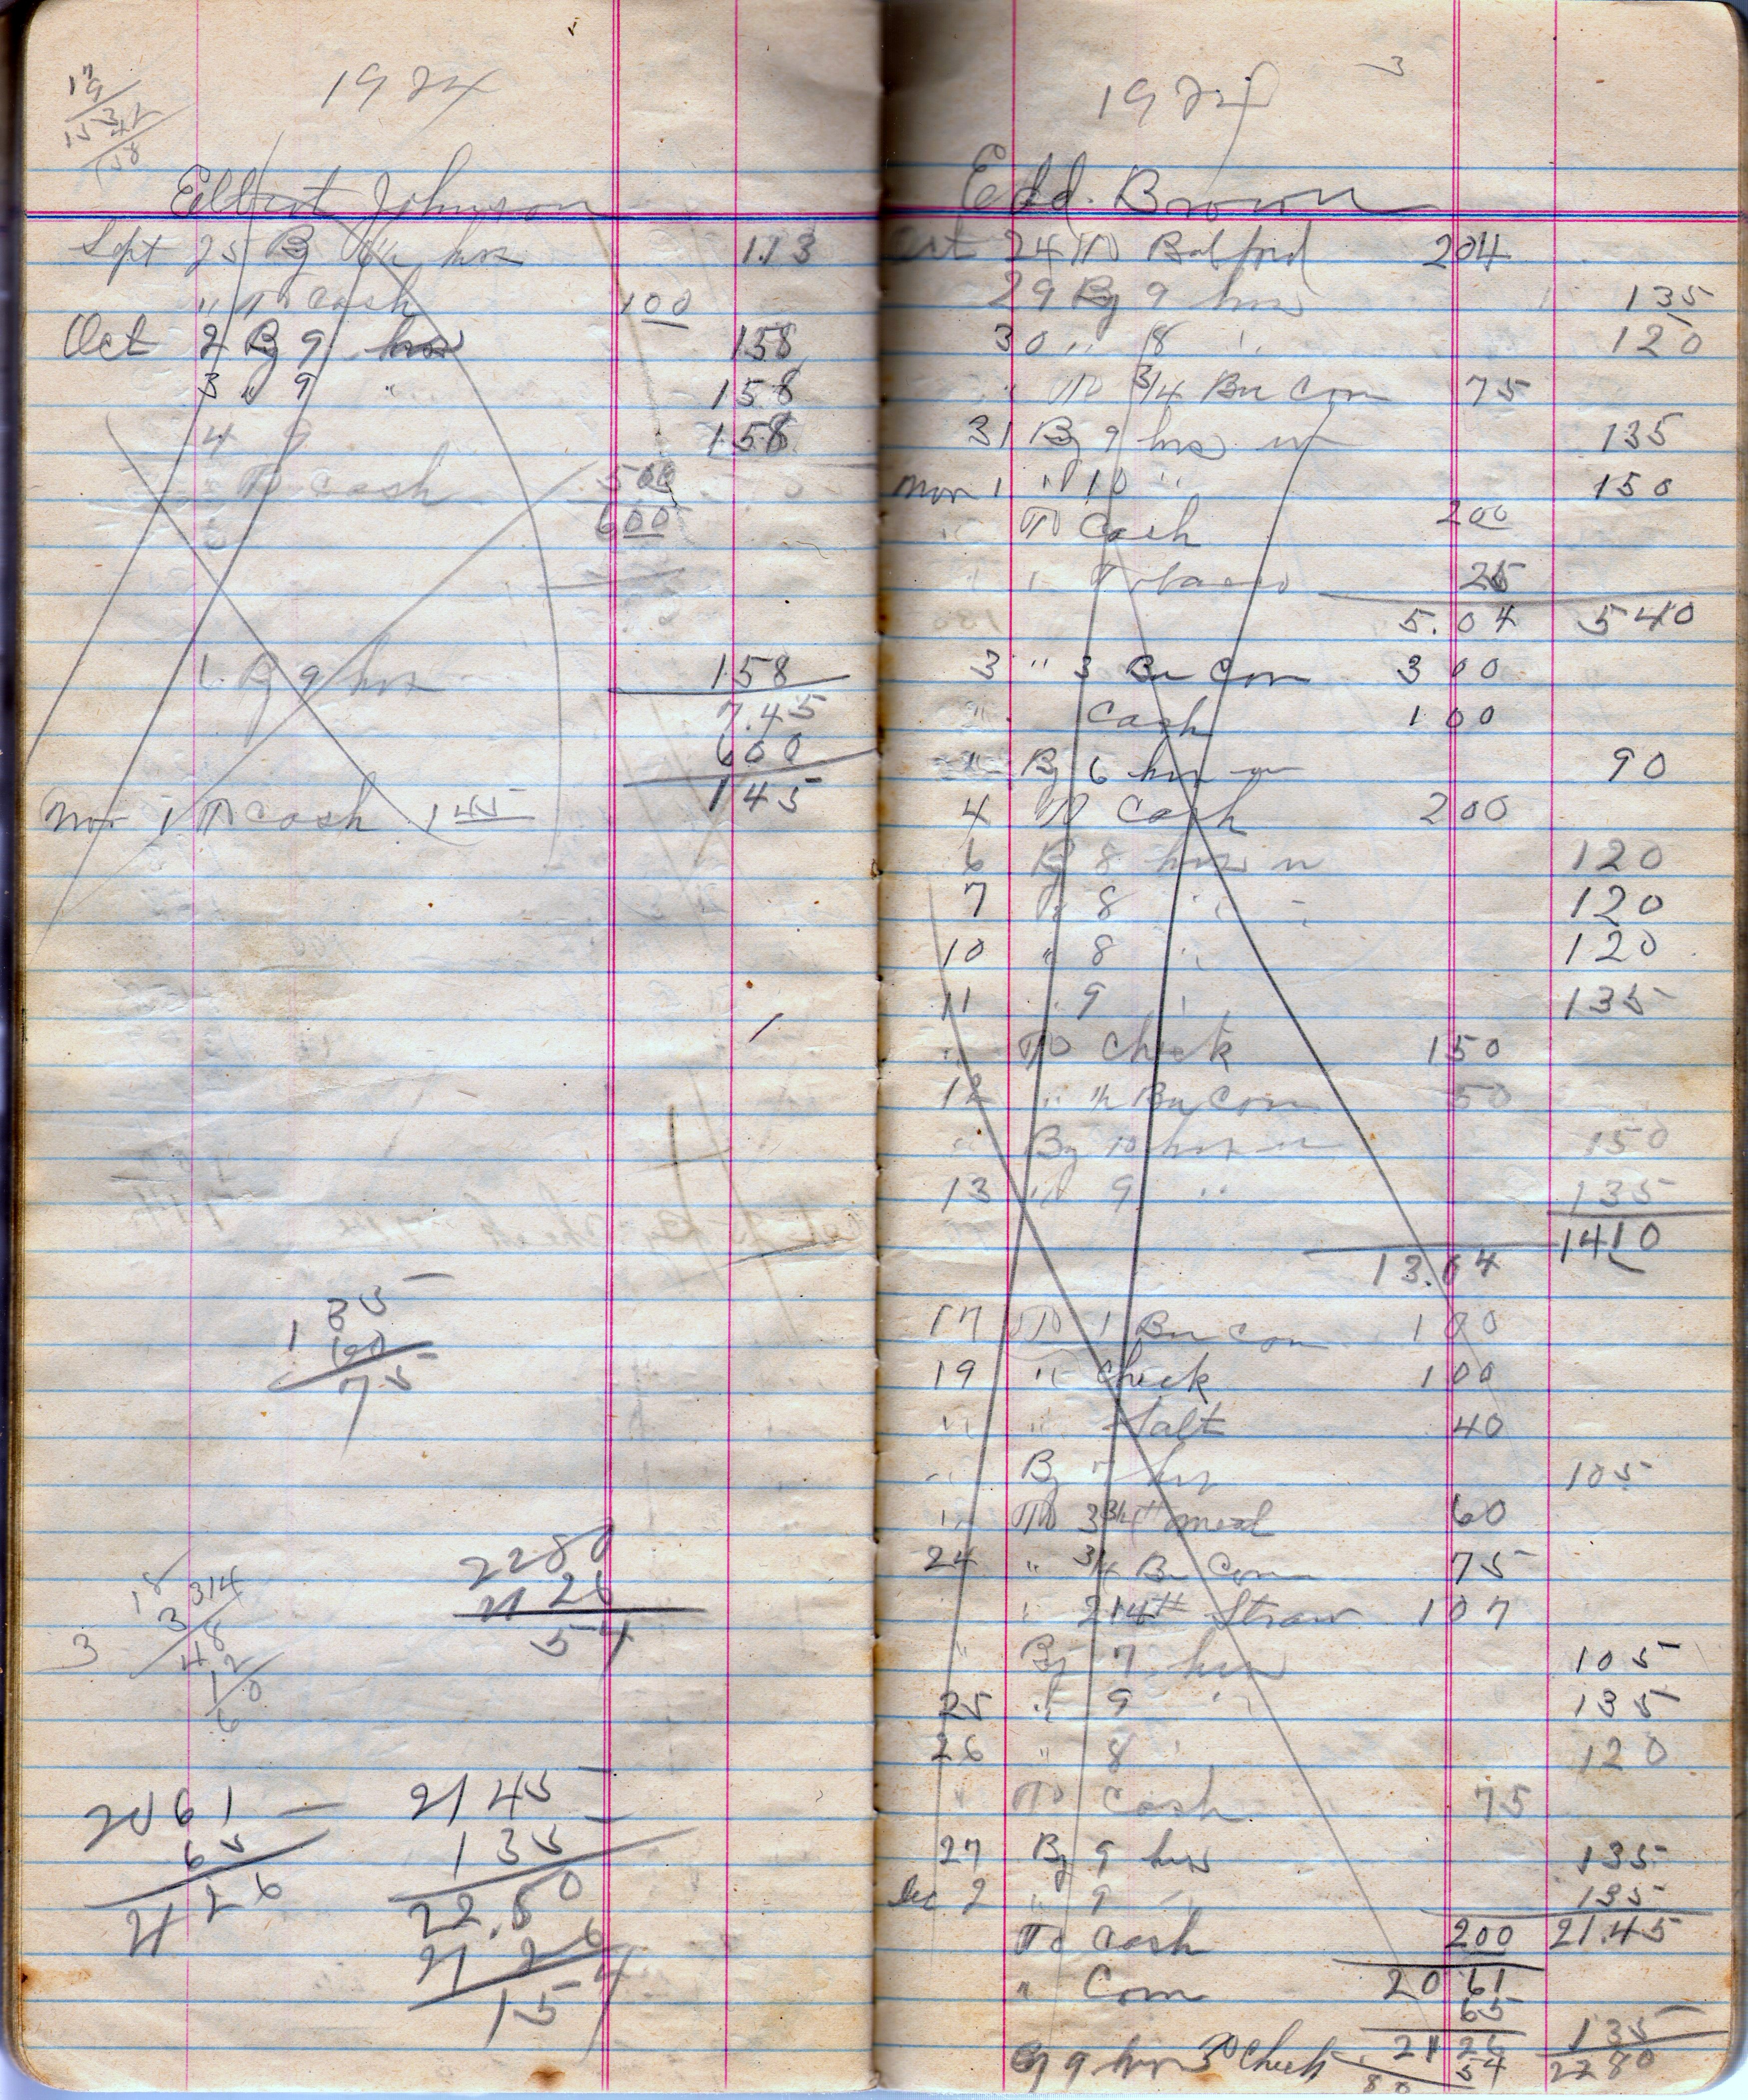 1924
Elbert Johnson
Sept 25 By 6½ hrs 1.13
" To Cash 100
Oct 2 By 9 hrs 158
3 " 9 " 158
4 9 158
To Cash 500
600
1 By 9 hrs 158
7.45
600
145
Nov 1 To Cash 145
135
60
75
2280
2126
54
3
2061
65
2126
2145
135
22.80
21 26
1 54
3
1924
Edd. Brown
Oct 24 To Balford 204
29 By 9 hrs 135
30 " 8 " 120
" To 3/4 Bu Corn 75
31 By 9 hrs w 135
Nov 1 " 10 " 150
" To Cash 200
" " Tobacco 25
5.04 540
3 " 3 Bu Corn 300
" Cash 100
" By 6 hrs w 90
4 To Cash 200
6 By 8 hrs w 120
7 " 8 " 120
10 " 8 " 120
11 " 9 " 135
" To Check 150
12 " ½ Bu Corn 50
" By 10 hrs w 150
13 " 9 " 135
1410
13.04
17 To 1 Bu Corn 100
19 " Check 100
" " Salt 40
" By 7 hrs 105
" To 3 3/4 # meal 60
24 " 3/4 Bu Corn 75
" 214# Straw 107
" By 7 hrs 105
25 " 9 " 135
26 " 8 " 120
" To Cash 75
27 By 9 hrs 135
Dec 2 " 9 " 135
To Cash 200 21.45
" Corn 20 61
65
By 9 hrs To Check 21 26 135
54 2280
80